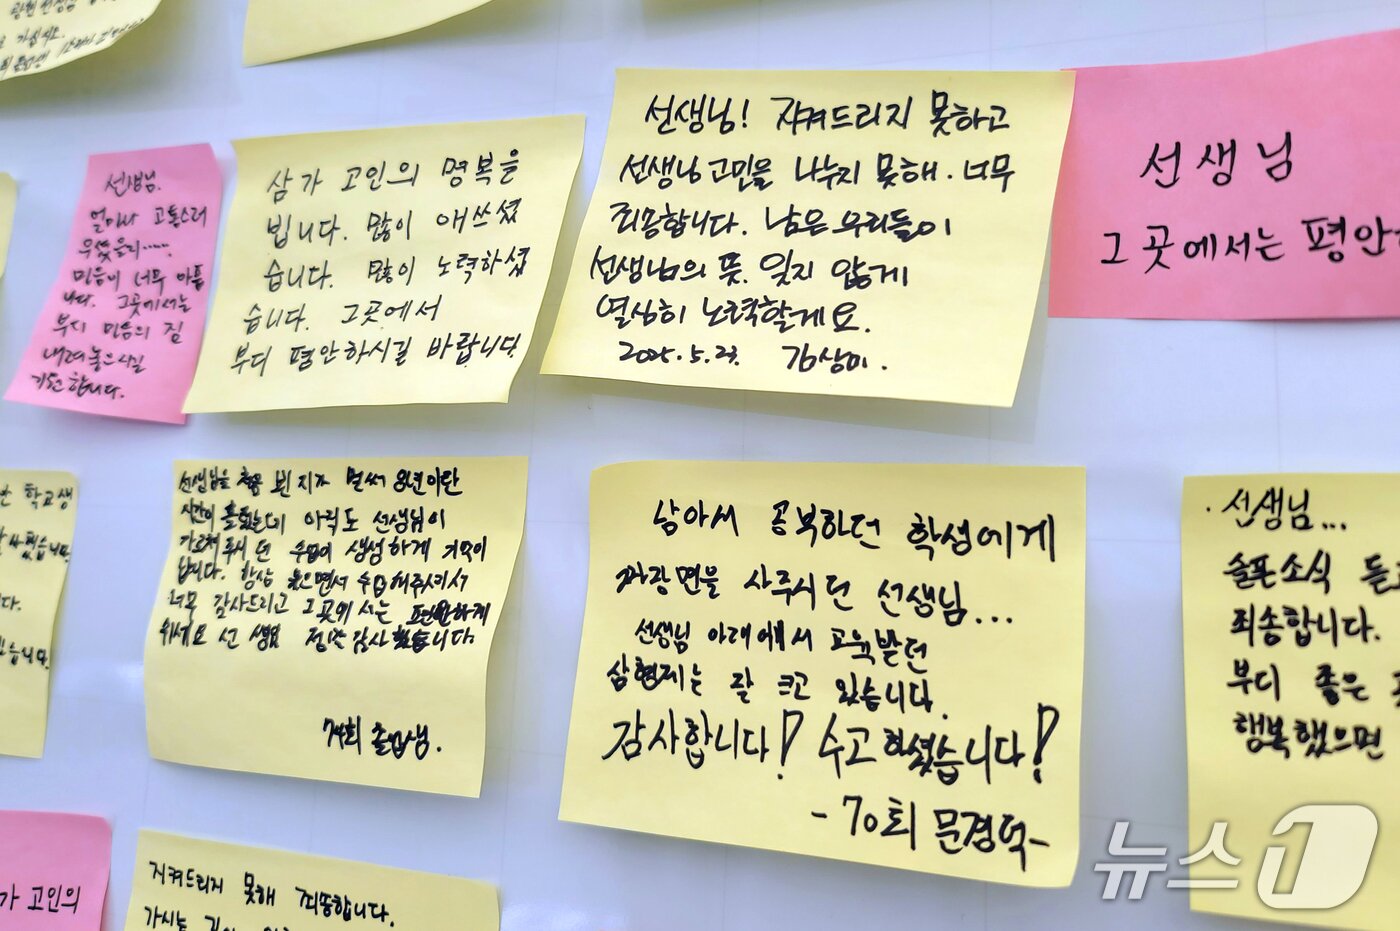 가십시오.
선생님.
얼마나 고통스러
우셨을지.....
마음이 너무 아픕
니다. 그곳에서는
부디 마음의 짐
내려놓으시길
기원합니다.
삼가 고인의 명복을
빕니다. 많이 애쓰셨
습니다. 많이 노력하셨
습니다. 그곳에서
부디 평안하시길 바랍니다.
선생님! 지켜드리지 못하고
선생님 고민을 나누지 못해. 너무
죄송합니다. 남은 우리들이
선생님의 뜻. 잊지 않게
열심히 노력할게요.
2025.5.23. 김상미.
선생님
그곳에서는 평안
학교생
습니다.
니다.
습니다.
선생님을 처음 뵌지가 벌써 8년이란
시간이 흘렀는데 아직도 선생님이
가르쳐주시던 수업이 생생하게 기억이
납니다. 항상 웃으면서 수업해주셔서
너무 감사드리고 그곳에서는 편안하게
쉬세요 선생님 정말 감사했습니다.
74회 졸업생.
남아서 공부하던 학생에게
짜장면을 사주시던 선생님...
선생님 아래에서 교육받던
삼형제는 잘 크고 있습니다.
감사합니다! 수고하셨습니다!
-70회 문경덕-
· 선생님...
슬픈소식 들
죄송합니다.
부디 좋은
행복했으면
가 고인의
지켜드리지 못해 죄송합니다.
가시는
뉴스1